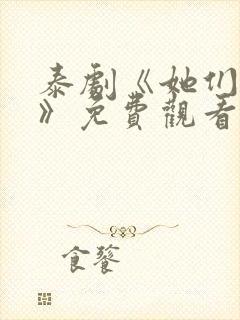 泰劇《她们
》免費觀看
食饕